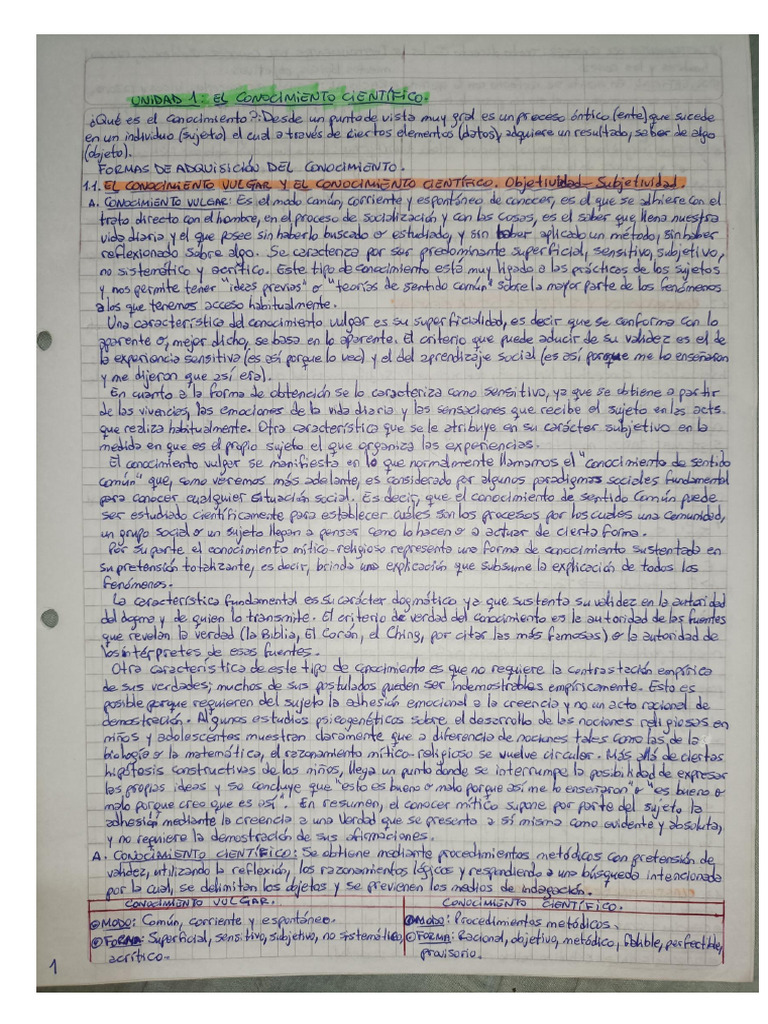 UNIDAD 1: EL CONOCIMIENTO CIENTÍFICO.
¿Qué es el conocimiento?: Desde un punto de vista muy gral es un proceso óntico (ente) que sucede
en un individuo (sujeto) el cual a través de ciertos elementos (datos), adquiere un resultado, saber de algo
(objeto).
FORMAS DE ADQUISICIÓN DEL CONOCIMIENTO.
1.1. EL CONOCIMIENTO VULGAR Y EL CONOCIMIENTO CIENTÍFICO. Objetividad - Subjetividad.
A. CONOCIMIENTO VULGAR: Es el modo común, corriente y espontáneo de conocer, es el que se adhiere con el
trato directo con el hombre, en el proceso de socialización y con las cosas, es el saber que llena nuestra
vida diaria y el que posee sin haberlo buscado o estudiado, y sin haber aplicado un método, sin haber
reflexionado sobre algo. Se caracteriza por ser predominante superficial, sensitivo, subjetivo,
no sistemático y acrítico. Este tipo de conocimiento está muy ligado a las prácticas de los sujetos
y nos permite tener "ideas previas" o "teorías de sentido común" sobre la mayor parte de los fenómenos
a los que tenemos acceso habitualmente.
Una característica del conocimiento vulgar es su superficialidad, es decir que se conforma con lo
aparente o, mejor dicho, se basa en lo aparente. El criterio que puede aducir de su validez es el de
la experiencia sensitiva (es así porque lo veo) y el del aprendizaje social (es así porque me lo enseñaron
y me dijeron que así era).
En cuanto a la forma de obtención se lo caracteriza como sensitivo, ya que se obtiene a partir
de las vivencias, las emociones de la vida diaria y las sensaciones que recibe el sujeto en las acts.
que realiza habitualmente. Otra característica que se le atribuye en su carácter subjetivo en la
medida en que es el propio sujeto el que organiza las experiencias.
El conocimiento vulgar se manifiesta en lo que normalmente llamamos el "conocimiento de sentido
común" que, como veremos más adelante, es considerado por algunos paradigmas sociales fundamental
para conocer cualquier situación social. Es decir, que el conocimiento de sentido común puede
ser estudiado científicamente para establecer cuáles son los procesos por los cuales una comunidad,
un grupo social o un sujeto llegan a pensar como lo hacen o a actuar de cierta forma.
Por su parte el conocimiento mítico-religioso representa una forma de conocimiento sustentada en
su pretensión totalizante, es decir, brinda una explicación que subsume la explicación de todos los
fenómenos.
La característica fundamental es su carácter dogmático ya que sustenta su validez en la autoridad
del dogma y de quien lo transmite. El criterio de verdad del conocimiento es la autoridad de las fuentes
que revelan la verdad (la Biblia, El Corán, el Ching, por citar las más famosas) o la autoridad de
los intérpretes de esas fuentes.
Otra característica de este tipo de conocimiento es que no requiere la contrastación empírica
de sus verdades; muchos de sus postulados pueden ser indemostrables empíricamente. Esto es
posible porque requieren del sujeto la adhesión emocional a la creencia y no un acto racional de
demostración. Algunos estudios psicogenéticos sobre el desarrollo de las nociones religiosas en
niños y adolescentes muestran claramente que a diferencia de nociones tales como las de la
biología o la matemática, el razonamiento mítico-religioso se vuelve circular. Más allá de ciertas
hipótesis constructivas de los niños, llega un punto donde se interrumpe la posibilidad de expresar
las propias ideas y so concluye que "esto es bueno o malo porque así me lo enseñaron" o "es bueno o
malo porque creo que es así". En resumen, el conocer mítico supone por parte del sujeto la
adhesión mediante la creencia a una verdad que se presenta a sí misma como evidente y absoluta,
y no requiere la demostración de sus afirmaciones.
A. CONOCIMIENTO CIENTÍFICO: Se obtiene mediante procedimientos metódicos con pretensión de
validez, utilizando la reflexión, los razonamientos lógicos y respondiendo a una búsqueda intencionada
por la cual, se delimitan los objetos y se previenen los medios de indagación.
CONOCIMIENTO VULGAR.
CONOCIMIENTO CIENTÍFICO.
MODO: Común, corriente y espontáneo.
MODO: Procedimientos metódicos.
FORMA: Superficial, sensitivo, subjetivo, no sistemático,
acrítico.
FORMA: Racional, objetivo, metódico, falible, perfectible,
provisorio.
1